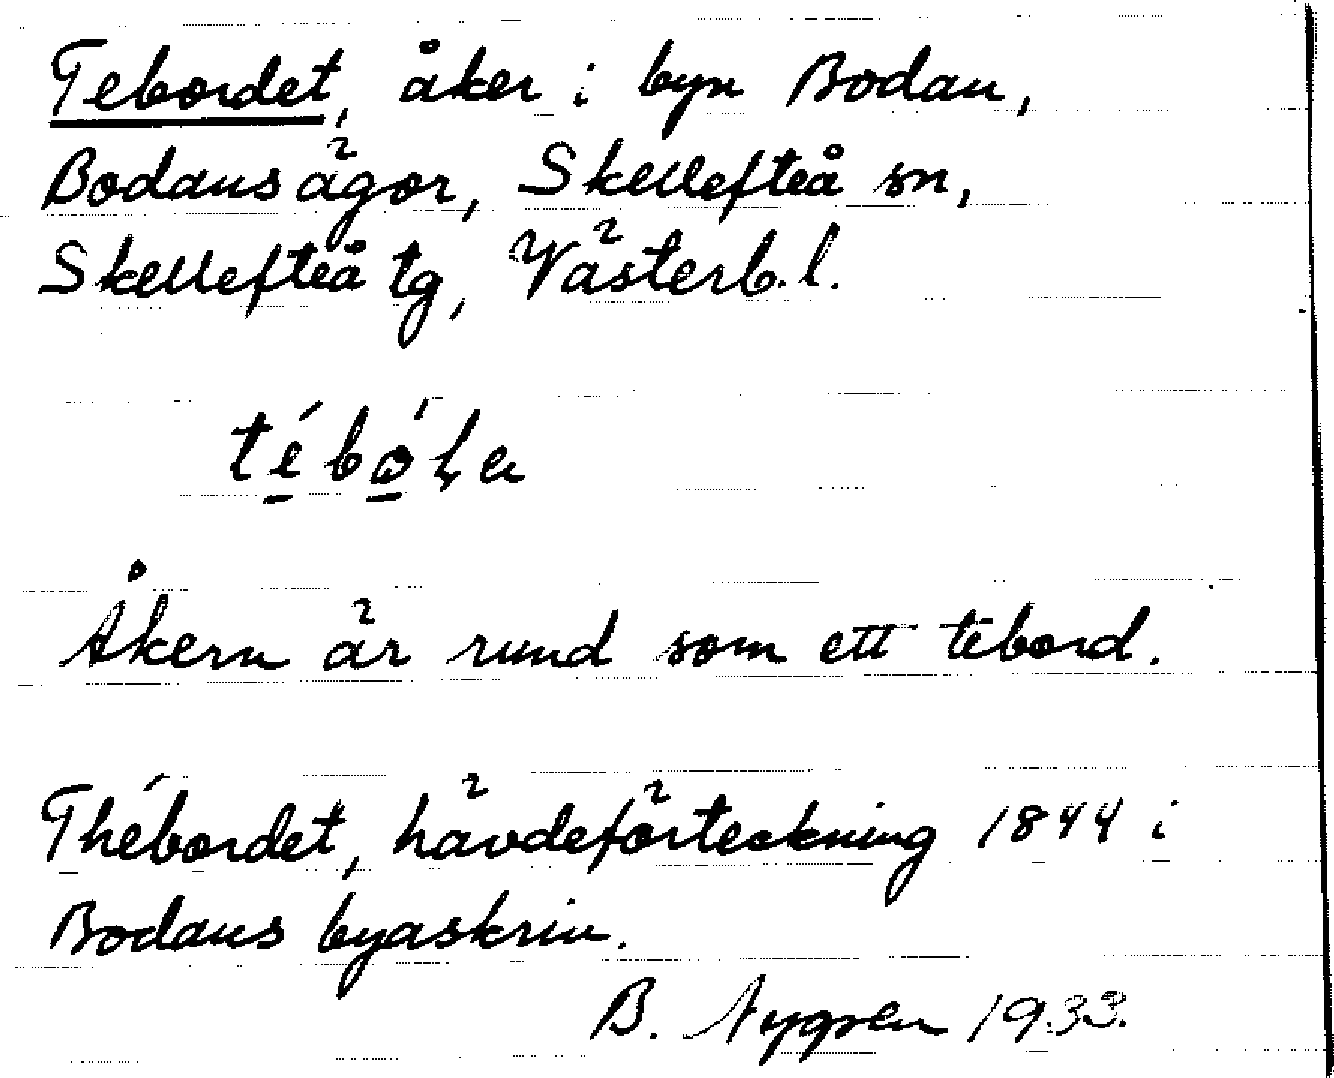 Tebordet, åker i byn Bodan,
Bodans ägor, Skellefteå sn,
Skellefteå tg, Västerb. l.
Åkern är rund som ett tebord.
Thébordet, hävdeförteckning 1844 i
Bodans byaskrin.
B. Nygren 1933.